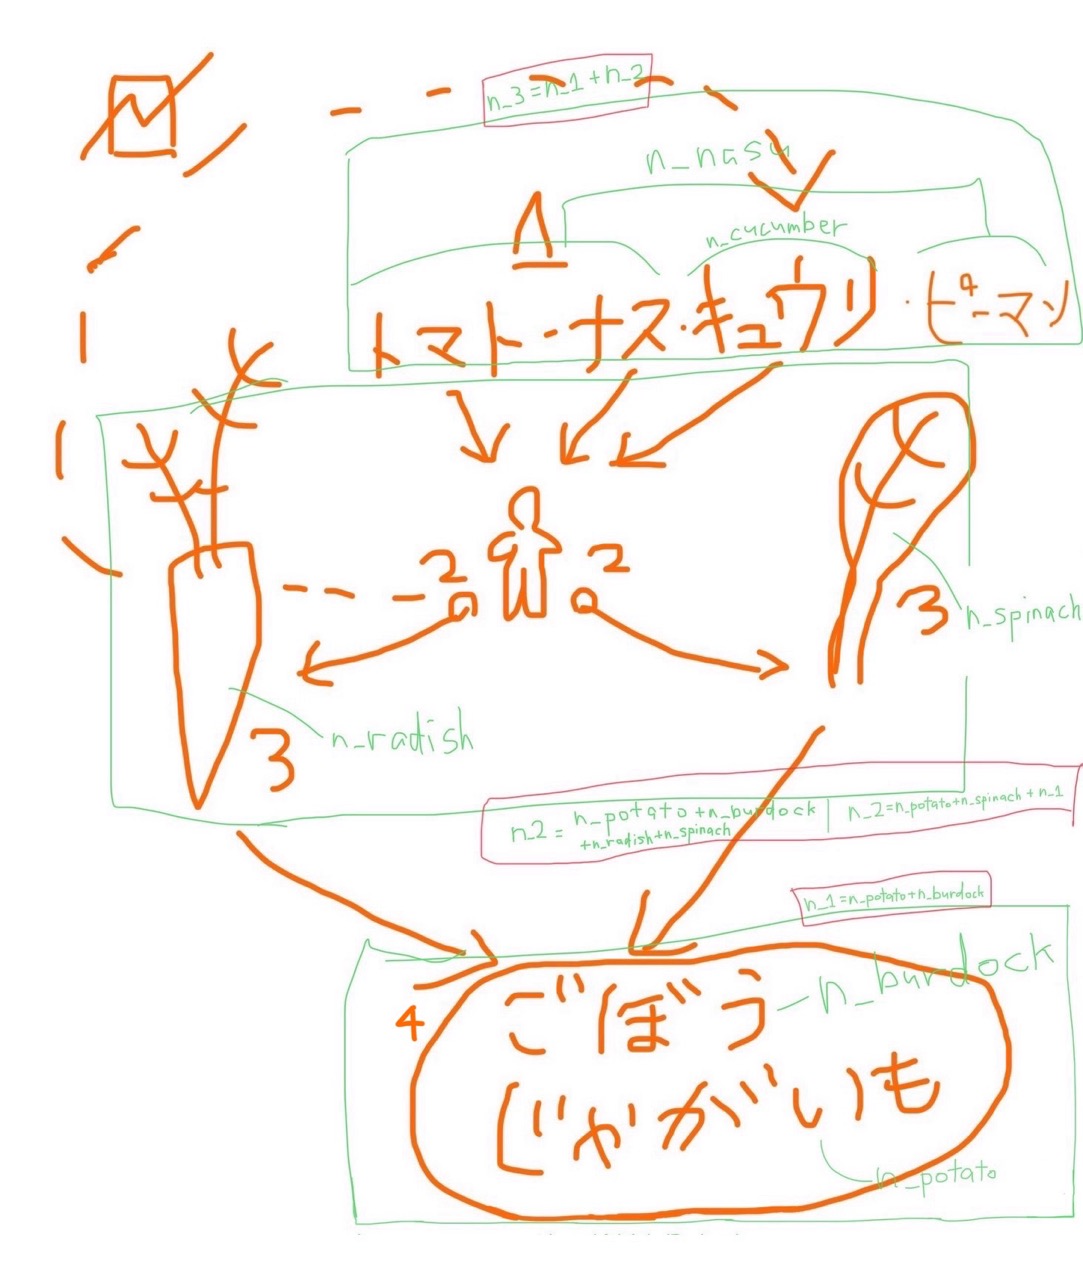 n_3=n_1+n_2
n_nasu
n_cucumber
トマト・ナス・キュウリ・ピーマン
2
2
3
n_spinach
n_radish
3
n_2 = n_potato+n_burdock
+n_radish+n_spinach
n_2=n_potato+n_spinach+n_1
n_1=n_potato+n_burdock
4
ごぼう
n_burdock
じゃがいも
n_potato